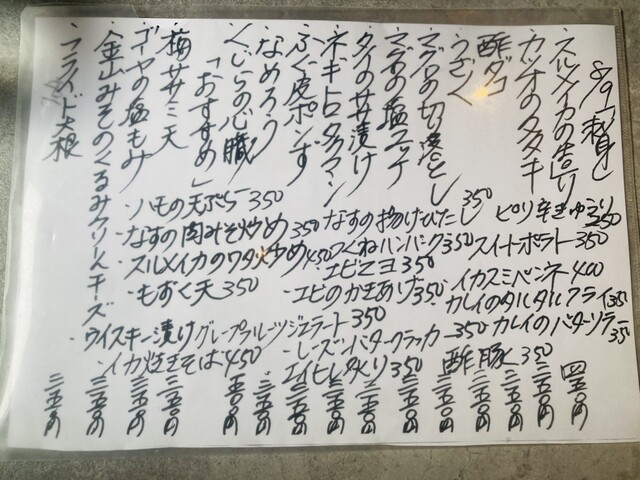 「刺身」
・スルメイカの造り 四五〇円
・カツオのタタキ 三五〇円
・酢ダコ 三五〇円
・うざく 三五〇円
・マグロの切り落とし 三五〇円
・マグロの塩ユッケ 三五〇円
・タイのササ漬け 三五〇円
・ネギトロタクアン 三五〇円
・ふぐ皮ポンず 三五〇円
・なめろう 三五〇円
・くじらの心臓 五〇円
「おすすめ」
・梅ササミ天 三五〇円
・ゴーヤの塩もみ 三五〇円
・金山みそのくるみクリームチーズ 三五〇円
・フライド大根 三五〇円
・ハモの天ぷら 350
・なすの肉みそ炒め 350
・スルメイカのワタ炒め 450
・もずく天 350
・なすの揚げびたし 350
・つくねハンバーグ 350
・エビマヨ 350
・エビのかきあげ 350
・ピリ辛きゅうり 350
・スイートポテト 350
・イカスミペンネ 400
・カレイのタルタルフライ 350
・カレイのバターソテー 350
・ウイスキー漬けグレープフルーツジェラート 350
・レーズンバタークラッカー 350
・イカ焼きそば 450
・エイヒレ炙り 350
・酢豚 350